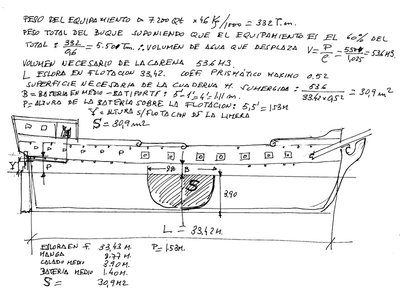 PESO DEL EQUIPAMIENTO ∝ 7.200 Qt × 46 K/1000 = 332 T.m.
PESO TOTAL DEL BUQUE SUPONIENDO QUE EL EQUIPAMIENTO ES EL 60% DEL
TOTAL: 332/0,6 = VOLUMEN DE AGUA QUE DESPLAZA V = P/ρ = = 536 M3
VOLUMEN NECESARIO DE LA CARENA 536 M3.
L ESLORA EN FLOTACION 33,42. COEF PRISMÁTICO MAXIMO 0,52
SUPERFICIE NECESARIA DE LA CUADERNA M. SUMERGIDA: 536/33,42×0,52 = 30,9 m2
B = BATERIA EN MEDIO - BATIPORTE: 5'-1'= 4'= 1,11 m.
P = ALTURA DE LA BATERÍA SOBRE LA FLOTACION: 5,5' = 1,53 M
Y = ALTURA S/FLOTACION DE LA LIMERA
S = 30,9 m2
Y
P
B
S
3,90
L = 33,42 M.
ESLORA EN F. 33,43 M. P = 1,53 M.
MANGA 8.77 M.
CALADO MEDIO 3.90 M.
BATERIA MEDIO 1.40 M.
S = 30,9 M2